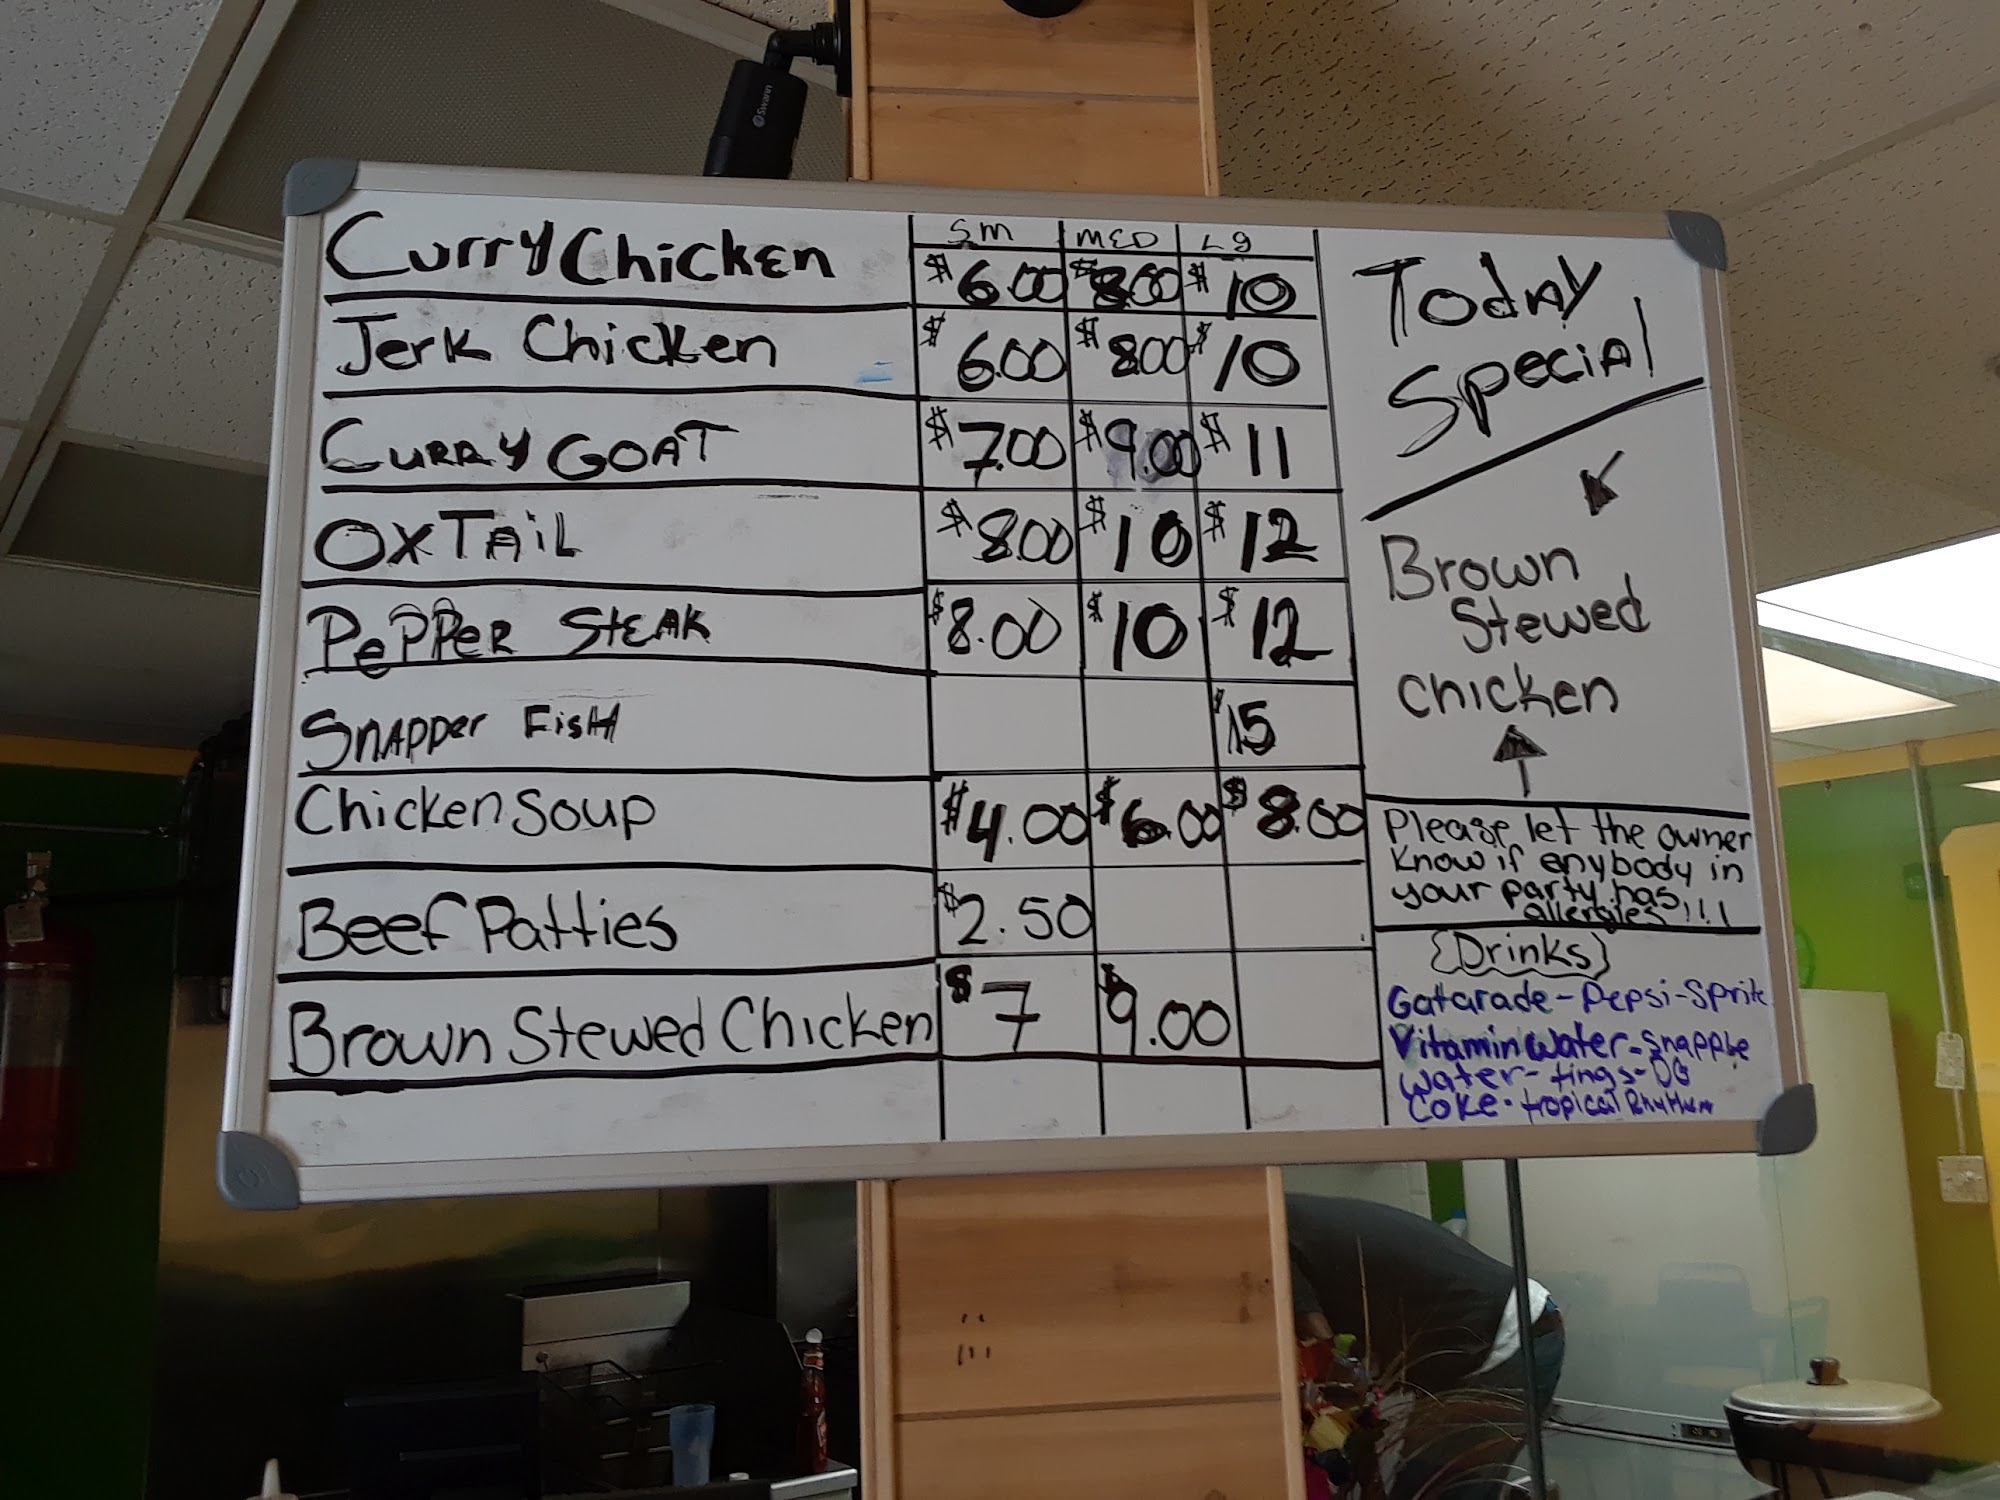 Swann
SM MED Lg
Curry Chicken $6.00 $8.00 $10
Jerk Chicken $6.00 $8.00 $10
Curry GOAT $7.00 $9.00 $11
OXTAiL $8.00 $10 $12
PePPER STEAK $8.00 $10 $12
Snapper Fish $15
Chicken Soup $4.00 $6.00 $8.00
Beef Patties $2.50
Brown Stewed Chicken $7 $9.00
Today
Special
Brown
Stewed
chicken
Please let the owner
Know if enybody in
your party has
allergies!!!
{Drinks}
Gatarade-Pepsi-Sprite
Vitamin Water-Snapple
Water-tings-DG
Coke-tropical Rhythm